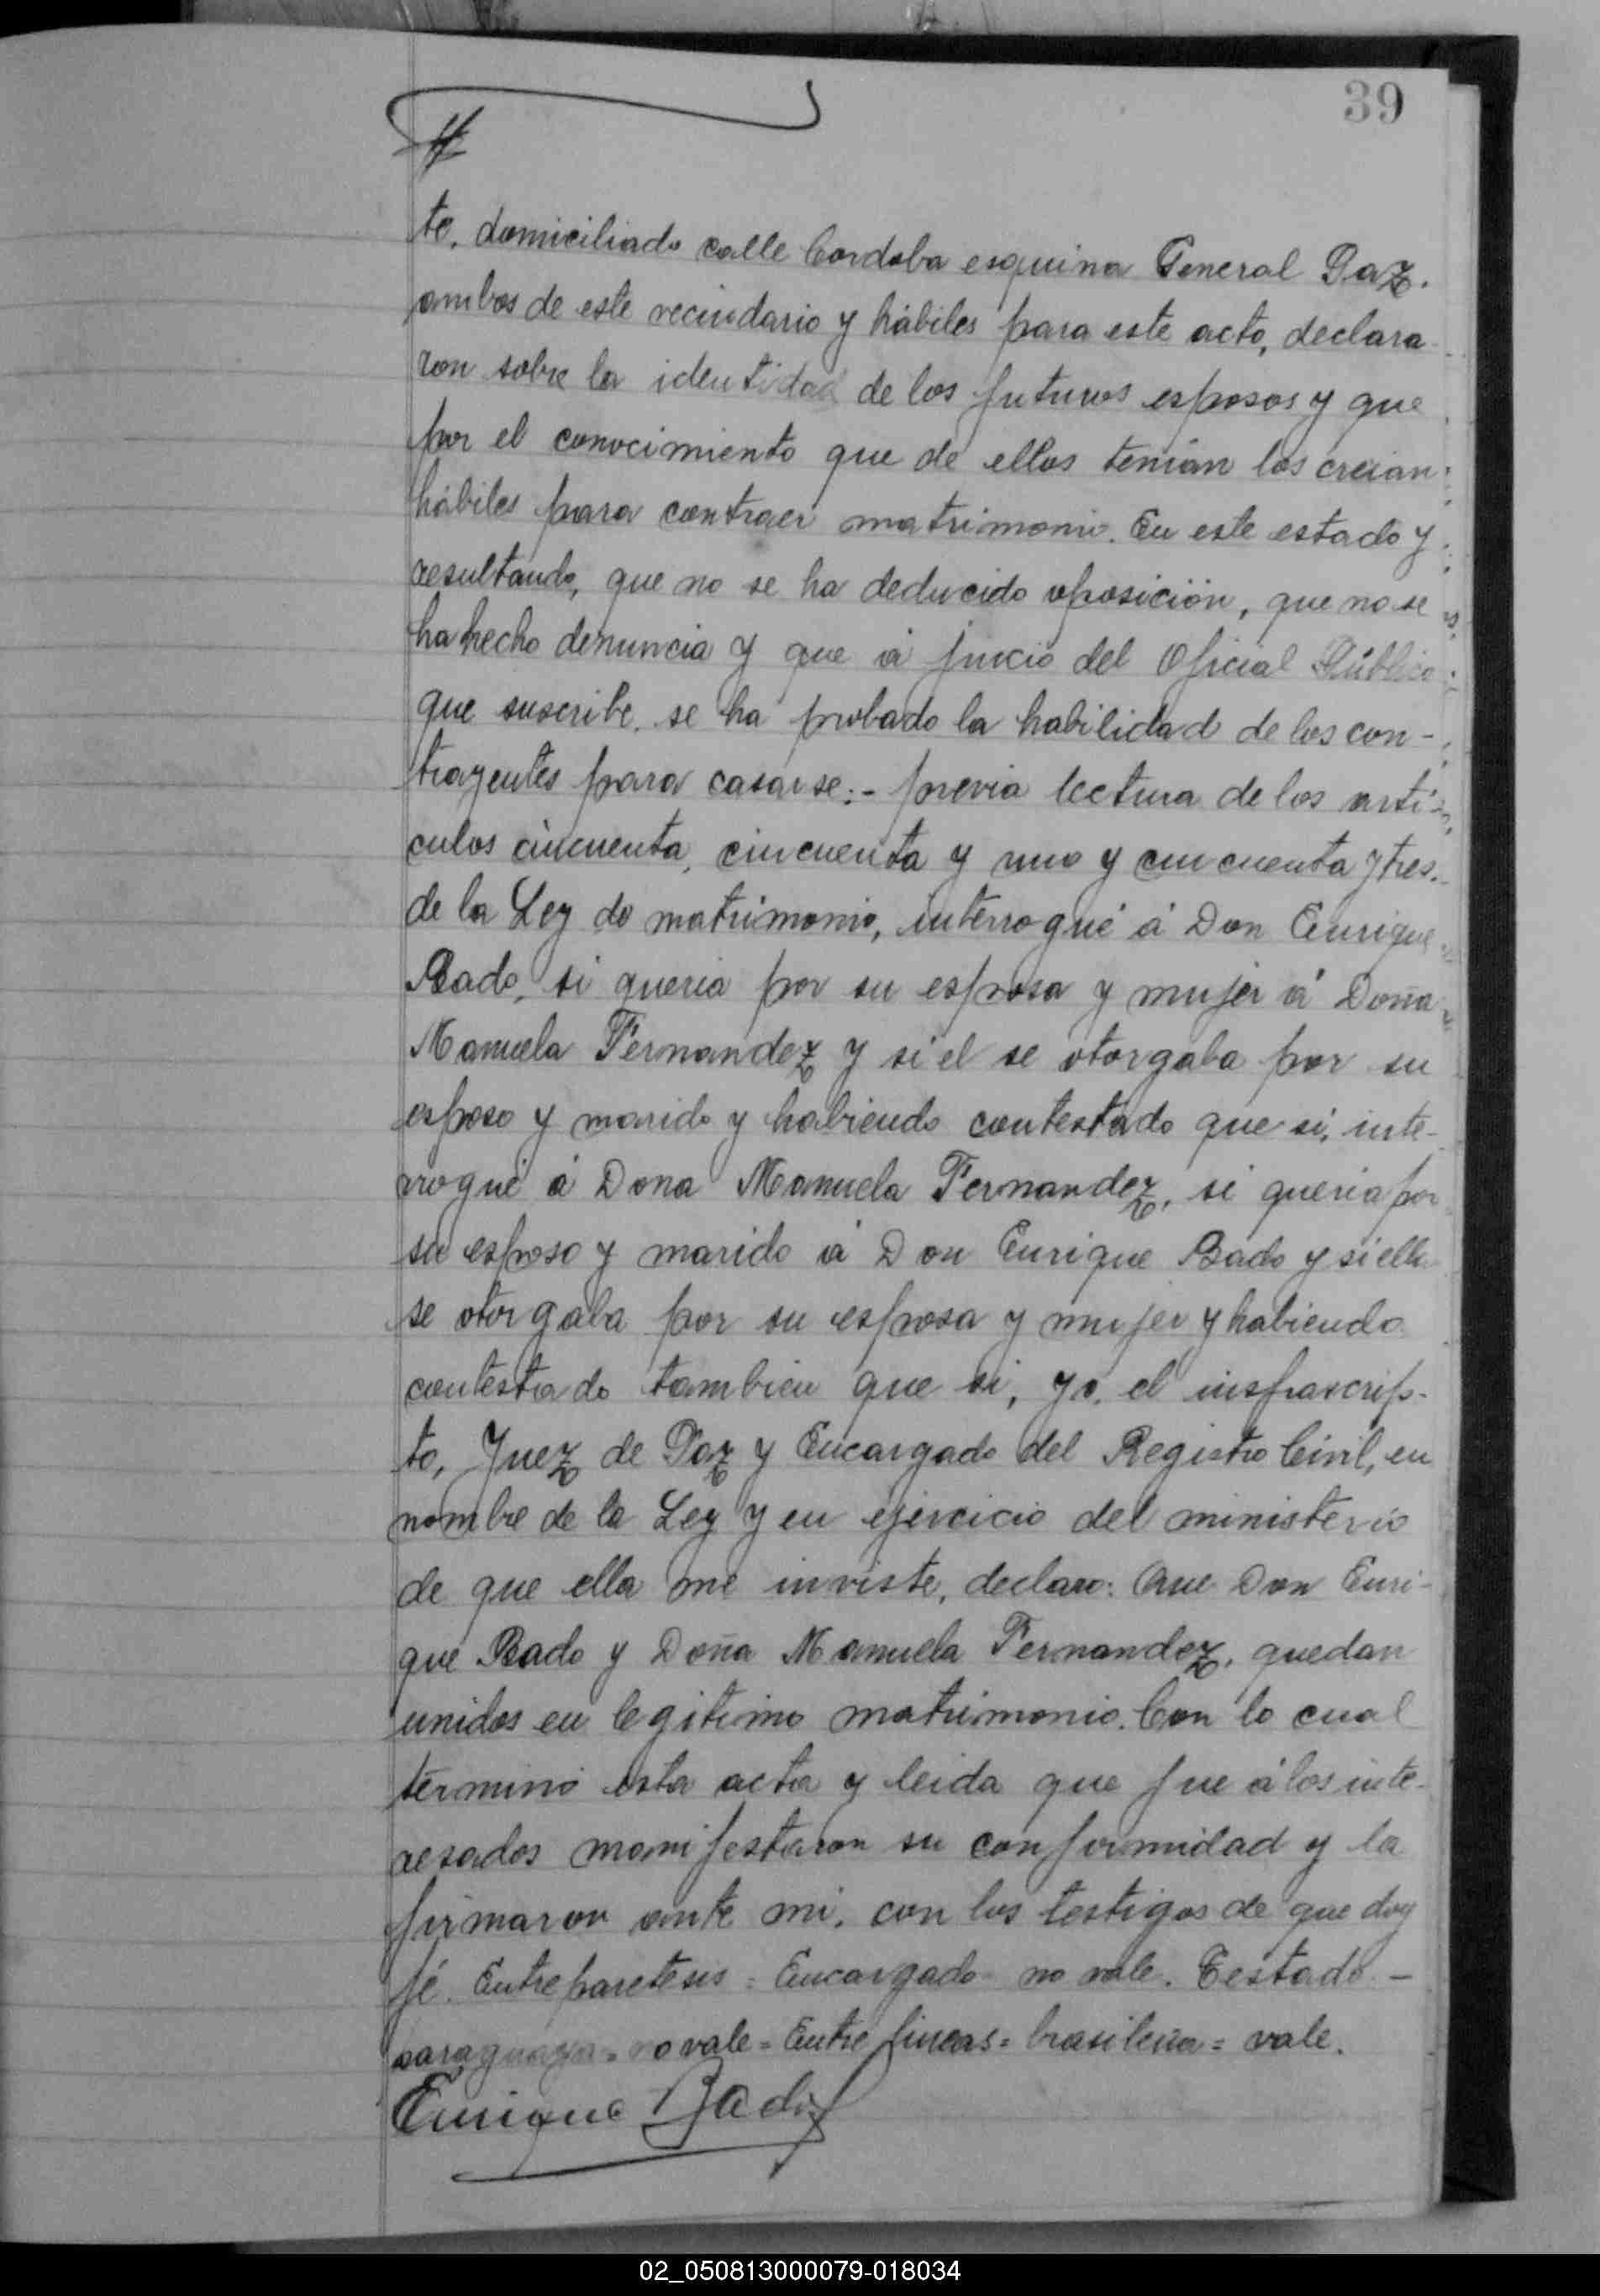 39
te, domiciliado calle Cordoba esquina General Paz.
ambos de este vecindario y hábiles para este acto, declara-
ron sobre la identidad de los futuros esposos y que
por el conocimiento que de ellos tenían los creían
hábiles para contraer matrimonio. En este estado y
resultando, que no se ha deducido oposición, que no se
ha hecho denuncia y que á juicio del Oficial Público
que suscribe, se ha probado la habilidad de los con-
trayentes para casarse:- previa lectura de los artí-
culos cincuenta, cincuenta y uno y cincuenta y tres.
de la Ley de matrimonio, interrogué á Don Enrique
Bado, si quería por su esposa y mujer á Doña
Manuela Fernandez y si el se otorgaba por su
esposo y marido y habiendo contestado que si, inte-
rrogué á Dona Manuela Fernandez, si quería por
su esposo y marido á Don Enrique Bado y si ella
se otorgaba por su esposa y mujer y habiendo
contestado tambien que si, yo, el insfrascrip-
to, Juez de Paz y Encargado del Registro Civil, en
nombre de la Ley y en ejercicio del ministerio
de que ella me inviste, declaro: Que Don Enri-
que Bado y Doña Manuela Fernandez, quedan
unidos en legitimo matrimonio. Con lo cual
terminó esta acta y leida que fue á los inte-
resados manifestaron su conformidad y la
firmaron ante mi, con los testigos de que doy
fé. Entre paretesis = Encargado = no vale. Testado -
paraguaya = no vale = Entre lineas = brasileña = vale.
Enrique Bado
02_050813000079-018034